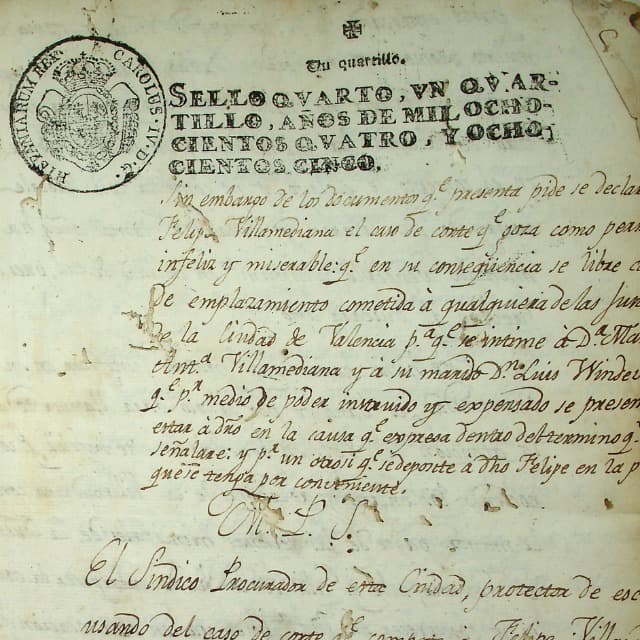 HISPANIARUM REX CAROLUS IV D.G.
Un quartillo.
SELLO QVARTO, VN QVAR-
TILLO, AÑOS DE MIL OCHO-
CIENTOS QVATRO, Y OCHO-
CIENTOS CINCO.
Sin embargo de los documentos q.e presenta pide se declar
Felipe Villamediana el caso de corte q.e goza como per
infeliz y miserable: q.e en su conseqüencia se libre
de emplazamiento cometida à qualquiera de las Jus
de la Ciudad de Valencia p.a q.e se intime à D.a Ma
Ant.a Villamediana y à su marido D.n Luis Winde
q.e p.r medio de poder instruido y expensado se presen
estar à dro en la causa q.e expresa dentro del termino q.
señalare: y p.r un otrosi q.e se deponte à dho Felipe en la p
que se tenga por conveniente.
M. P. S.
El Sindico Procurador de esta Ciudad, protector de esc
usando del caso de corte q.e compete à Felipe Vill